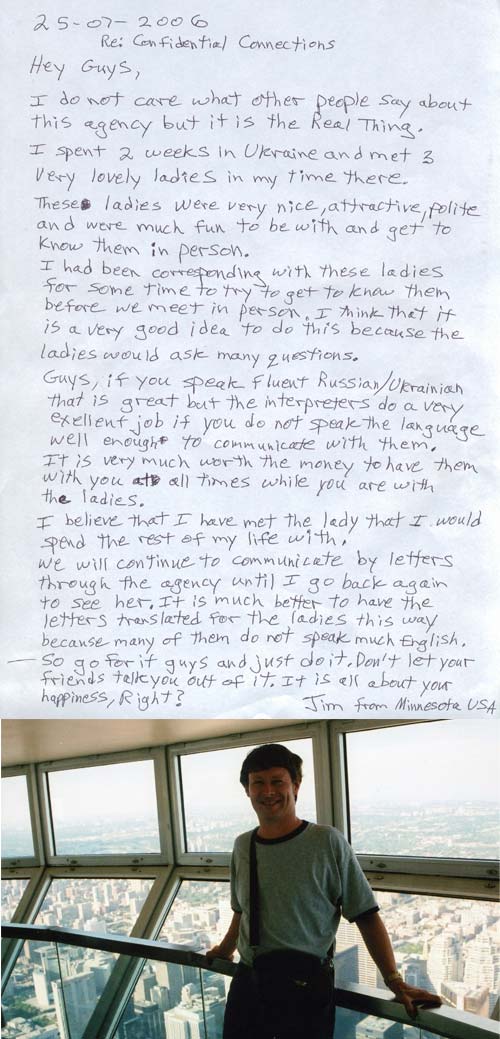 25-07-2006
Re: Confidential Connections
Hey Guys,
I do not care what other people say about
this agency but it is the Real Thing.
I spent 2 weeks in Ukraine and met 3
very lovely ladies in my time there.
These ladies were very nice, attractive, polite
and were much fun to be with and get to
know them in person.
I had been corresponding with these ladies
for some time to try to get to know them
before we meet in person. I think that it
is a very good idea to do this because the
ladies would ask many questions.
Guys, if you speak Fluent Russian/Ukrainian
that is great but the interpreters do a very
exellent job if you do not speak the language
well enough to communicate with them.
It is very much worth the money to have them
with you at all times while you are with
the ladies.
I believe that I have met the lady that I would
spend the rest of my life with.
We will continue to communicate by letters
through the agency until I go back again
to see her. It is much better to have the
letters translated for the ladies this way
because many of them do not speak much English.
— So go for it guys and just do it. Don't let your
friends talk you out of it. It is all about your
happiness, Right?
Jim from Minnesota USA